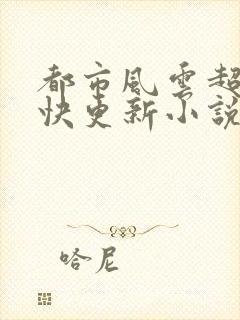 都市風雲超
快更新小說
哈尼